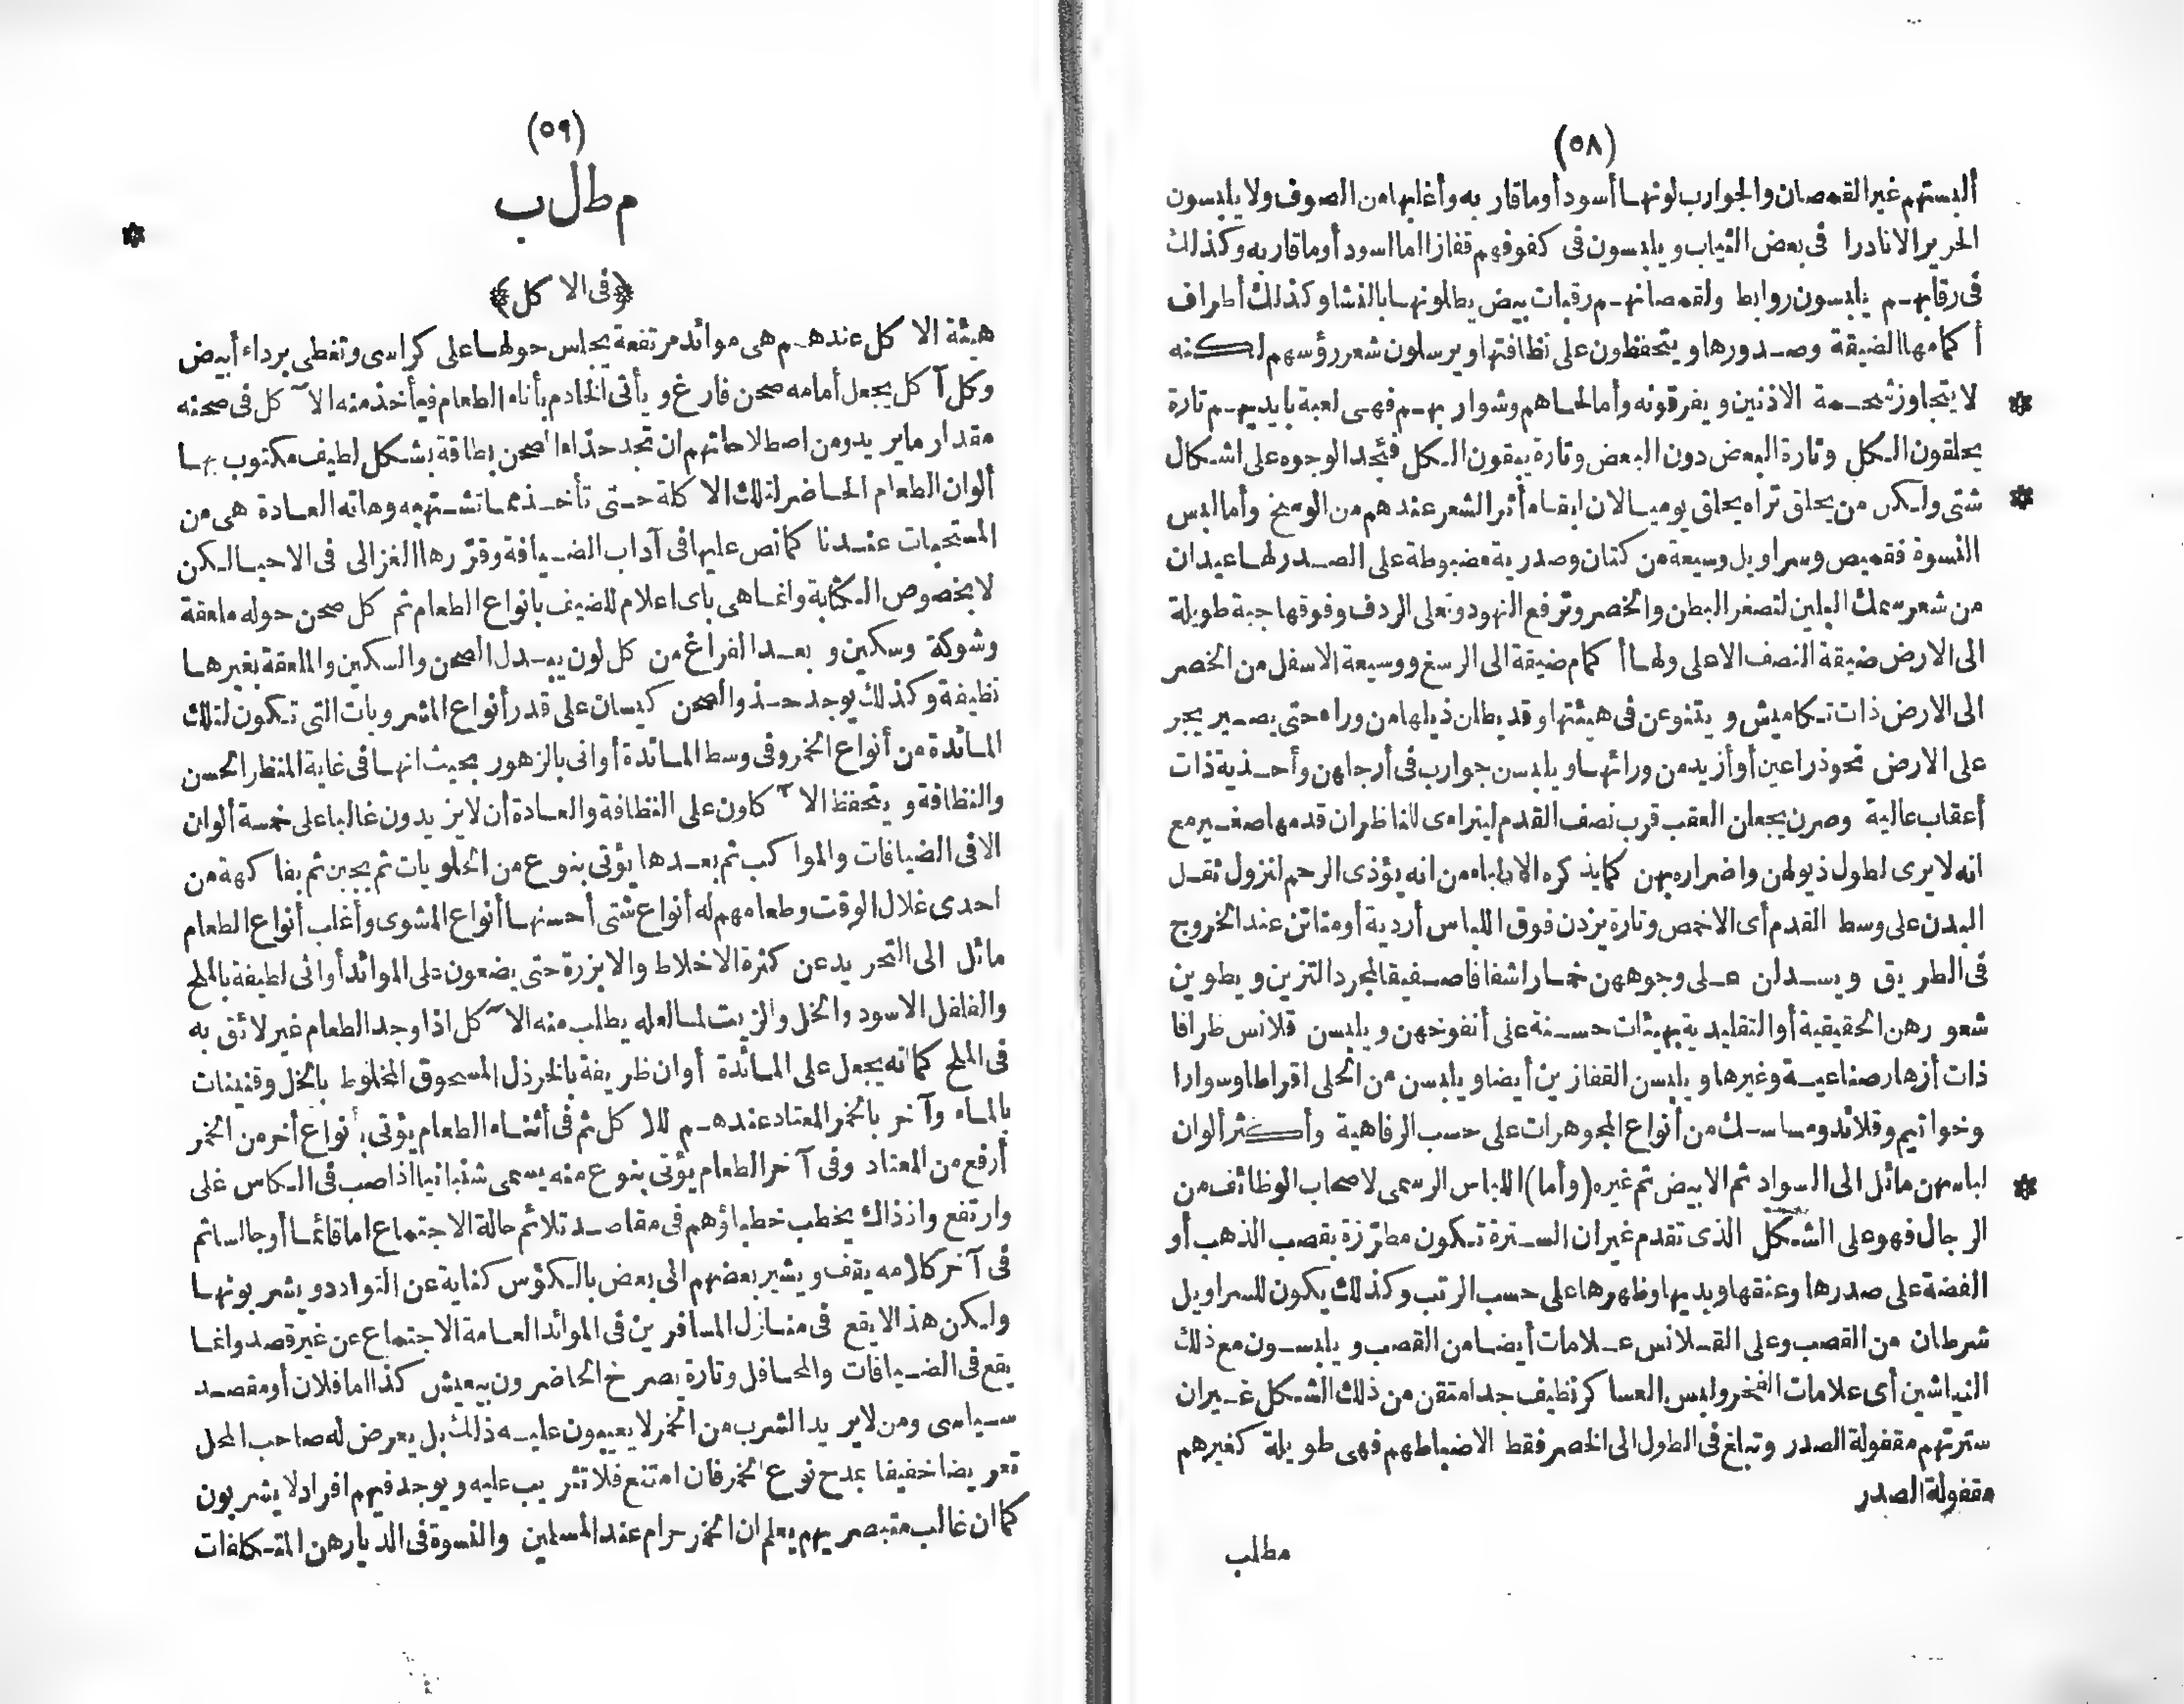 (٥٨)
ألبستهم غير القمصان والجوارب لونها أسود أو ما قار به وأغلبها من الصوف ولا يلبسون
الحرير الا نادرا فى بعض الثياب ويلبسون فى كفوفهم قفازا اما اسود أو ما قاربه وكذلك
فى رقابهم يلبسون روابط ولقمصانهم رقبات بيض يطلونها بالنشا وكذلك أطراف
أكمامها الضيقة وصدورها ويتحفظون على نظافتها ويرسلون شعر رؤسهم لكنه
لا يتجاوز شحمة الاذنين ويفرقونه وأما لحاهم وشواربهم فهى لعبة بايديهم تارة
يحلقون الكل وتارة البعض دون البعض وتارة يبقون الكل فتجد الوجوه على اشكال
شتى ولكن من يحلق تراه يحلق يوميا لان ابقاء أثر الشعر عندهم من الوسخ وأما لبس
النسوة فقميص وسراويل وسيعة من كتان وصدرية مضبوطة على الصدر لها عيدان
من شعر سمك البلين لتصغر البطن والخصر وترفع النهود وتعلى الردف وفوقها جبة طويلة
الى الارض ضيقة النصف الاعلى ولها أكمام ضيقة الى الرسغ ووسيعة الاسفل من الخصر
الى الارض ذات تكاميش ويتنوعن فى هيئتها وقد يطلن ذيلها من وراء حتى يصير يجر
على الارض نحو ذراعين أو أزيد من ورائها ويلبسن جوارب فى أرجلهن وأحذية ذات
أعقاب عالية وصرن يجعلن العقب قرب نصف القدم ليتراءى للناظر ان قدمها صغير مع
انه لا يرى لطول ذيولهن واضراره بهن كما يذكره الاطباء من انه يؤذى الرحم لنزول ثقل
البدن على وسط القدم أى الاخمص وتارة يزدن فوق اللباس أردية أو متاتن عند الخروج
فى الطريق ويسدلن على وجوههن خمارا شفافا صفيقا لمجرد التزين ويطوين
شعورهن الحقيقية أو التقليدية بهيئات حسنة على أنفوخهن ويلبسن قلانس ظرافا
ذات أزهار صناعية وغيرها ويلبسن القفازين أيضا ويلبسن من الحلى اقراطا وسوارا
وخواتيم وقلائد ومساسك من أنواع المجوهرات على حسب الرفاهية وأكثر ألوان
لباسهن مائل الى السواد ثم الابيض ثم غيره (وأما) اللباس الرسمى لاصحاب الوظائف من
الرجال فهو على الشكل الذى تقدم غير ان السترة تكون مطرّزة بقصب الذهب أو
الفضة على صدرها وعنقها ويديها وظهرها على حسب الرتب وكذلك يكون للسراويل
شرطان من القصب وعلى القلانس علامات أيضا من القصب ويلبسون مع ذلك
النياشين أى علامات الفخر ولبس العساكر نظيف جدا متقن من ذلك الشكل غير ان
سترتهم مقفولة الصدر وتبلغ فى الطول الى الخصر فقط الا ضباطهم فهى طويلة كغيرهم
مقفولة الصدر
مطلب
(٥٩)
مطلب
﴿فى الاكل﴾
هيئة الاكل عندهم هى موائد مرتفعة يجلس حولها على كراسى وتغطى برداء أبيض
وكل آكل يجعل أمامه صحن فارغ ويأتى الخادم بأناء الطعام فيأخذ منه الآكل فى صحنه
مقدار ما يريد ومن اصطلاحاتهم ان تجد حذاء الصحن بطاقة بشكل لطيف مكتوب بها
ألوان الطعام الحاضر لتلك الاكلة حتى تأخذ مما تشتهيه وهاته العادة هى من
المستحبات عندنا كما نص عليها فى آداب الضيافة وقرّرها الغزالى فى الاحيا لكن
لا بخصوص الكتابة وانما هى باى اعلام للضيف بانواع الطعام ثم كل صحن حوله ملعقة
وشوكة وسكين وبعد الفراغ من كل لون يبدل الصحن والسكين والملعقة بغيرها
نظيفة وكذلك يوجد حذو الصحن كيسان على قدر أنواع المشروبات التى تكون لتلك
المائدة من أنواع الخمر وفى وسط المائدة أوانى بالزهور بحيث انها فى غاية المنظر الحسن
والنظافة ويتحفظ الآكلون على النظافة والعادة أن لا يزيدون غالبا على خمسة ألوان
الا فى الضيافات والمواكب ثم بعدها يؤتى بنوع من الحلويات ثم بجبن ثم بفاكهة من
احدى غلال الوقت وطعامهم له أنواع شتى أحسنها أنواع المشوى وأغلب أنواع الطعام
مائل الى التحريد عن كثرة الاخلاط والابزرة حتى يضعون على الموائد أوانى لطيفة بالملح
والفلفل الاسود والخل والزيت لما لعله يطلب منه الآكل اذا وجد الطعام غير لائق به
فى الملح كما انه يجعل على المائدة أوان ظريفة بالخرذل المسحوق المخلوط بالخل وقنينات
بالماء وآخر بالخمر المعتاد عندهم للاكل ثم فى أثناء الطعام يؤتى بأنواع أخر من الخمر
أرفع من المعتاد وفى آخر الطعام يؤتى بنوع منه يسمى شنبانيا اذا صب فى الكاس غلى
وارتفع واذذاك يخطب خطباؤهم فى مقاصد تلائم حالة الاجتماع اما قائما أو جالسا ثم
فى آخر كلامه يقف ويشير بعضهم الى بعض بالكؤس كناية عن التوادد ويشربونها
ولكن هذا لا يقع فى منازل المسافرين فى الموائد العامة الاجتماع عن غير قصد وانما
يقع فى الضيافات والمحافل وتارة يصرخ الحاضرون بيعيش كذا اما فلان أو مقصد
سياسى ومن لا يريد الشرب من الخمر لا يعيبون عليه ذلك بل يعرض له صاحب المحل
تعريضا خفيفا بمدح نوع الخمر فان امتنع فلا تثريب عليه ويوجد فيهم افراد لا يشربون
كما ان غالب متبصريهم يعلم ان الخمر حرام عند المسلمين والنسوة فى الديار هن المتكلفات